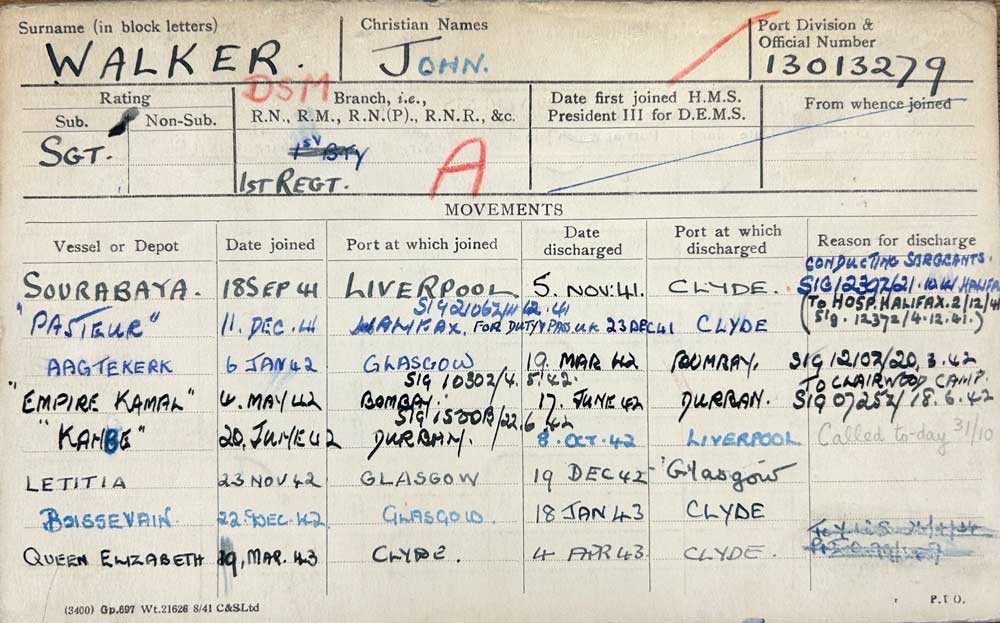 Surname (in block letters) Christian Names Port Division &
Official Number
WALKER. JOHN. 13013279
DSM
Rating Branch, i.e., Date first joined H.M.S. From whence joined
Sub. Non-Sub. R.N., R.M., R.N.(P)., R.N.R., &c. President III for D.E.M.S.
SGT. BTY
1ST REGT. A
MOVEMENTS
Vessel or Depot Date joined Port at which joined Date discharged Port at which discharged Reason for discharge
CONDUCTING SERGEANTS.
SOURABAYA. 18 SEP 41 LIVERPOOL 5. NOV. 41. CLYDE. HALIFAX
(TO HOSP. HALIFAX. 2/12/41
"PASTEUR" 11. DEC. 41 HALIFAX. FOR DUTY PASS. UK 23 DEC 41 CLYDE SIG. 12372/4.12.41.)
AAGTEKERK 6 JAN 42 GLASGOW 19. MAR 42 BOMBAY. SIG 12103/20.3.42
SIG 10302/4.5.42. TO CLAIRWOOD CAMP.
"EMPIRE KAMAL" 4. MAY 42 BOMBAY. 17. JUNE 42 DURBAN. SIG 07252/18.6.42
22.6.42
"KAMBE" 20, JUNE 42 DURBAN. 8. OCT. 42 LIVERPOOL Called to-day 31/10
LETITIA 23 NOV 42 GLASGOW 19 DEC 42 Glasgow
BOISSEVAIN. 22. DEC. 42 GLASGOW. 18 JAN 43 CLYDE
QUEEN ELIZABETH 19, MAR. 43 CLYDE. 4 APR 43 CLYDE.
(3400) Gp.697 Wt.21626 8/41 C&SLtd P.T.O.